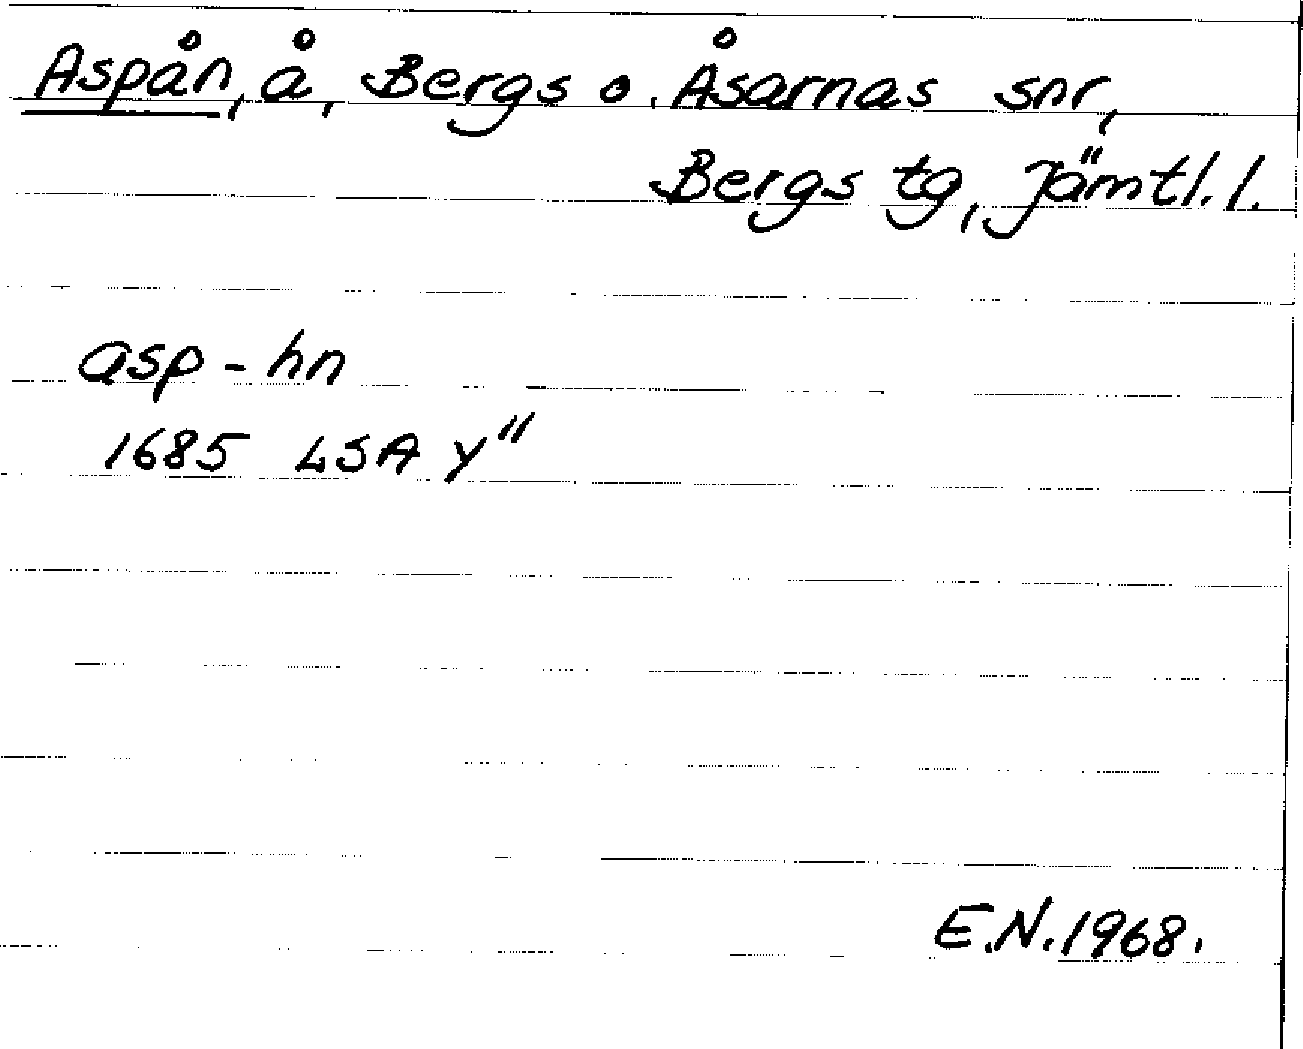 Aspån, å, Bergs o. Åsarnas snr,
Bergs tg, Jämtl. l.
asp - hn
1685 LSA Y"
E.N. 1968.